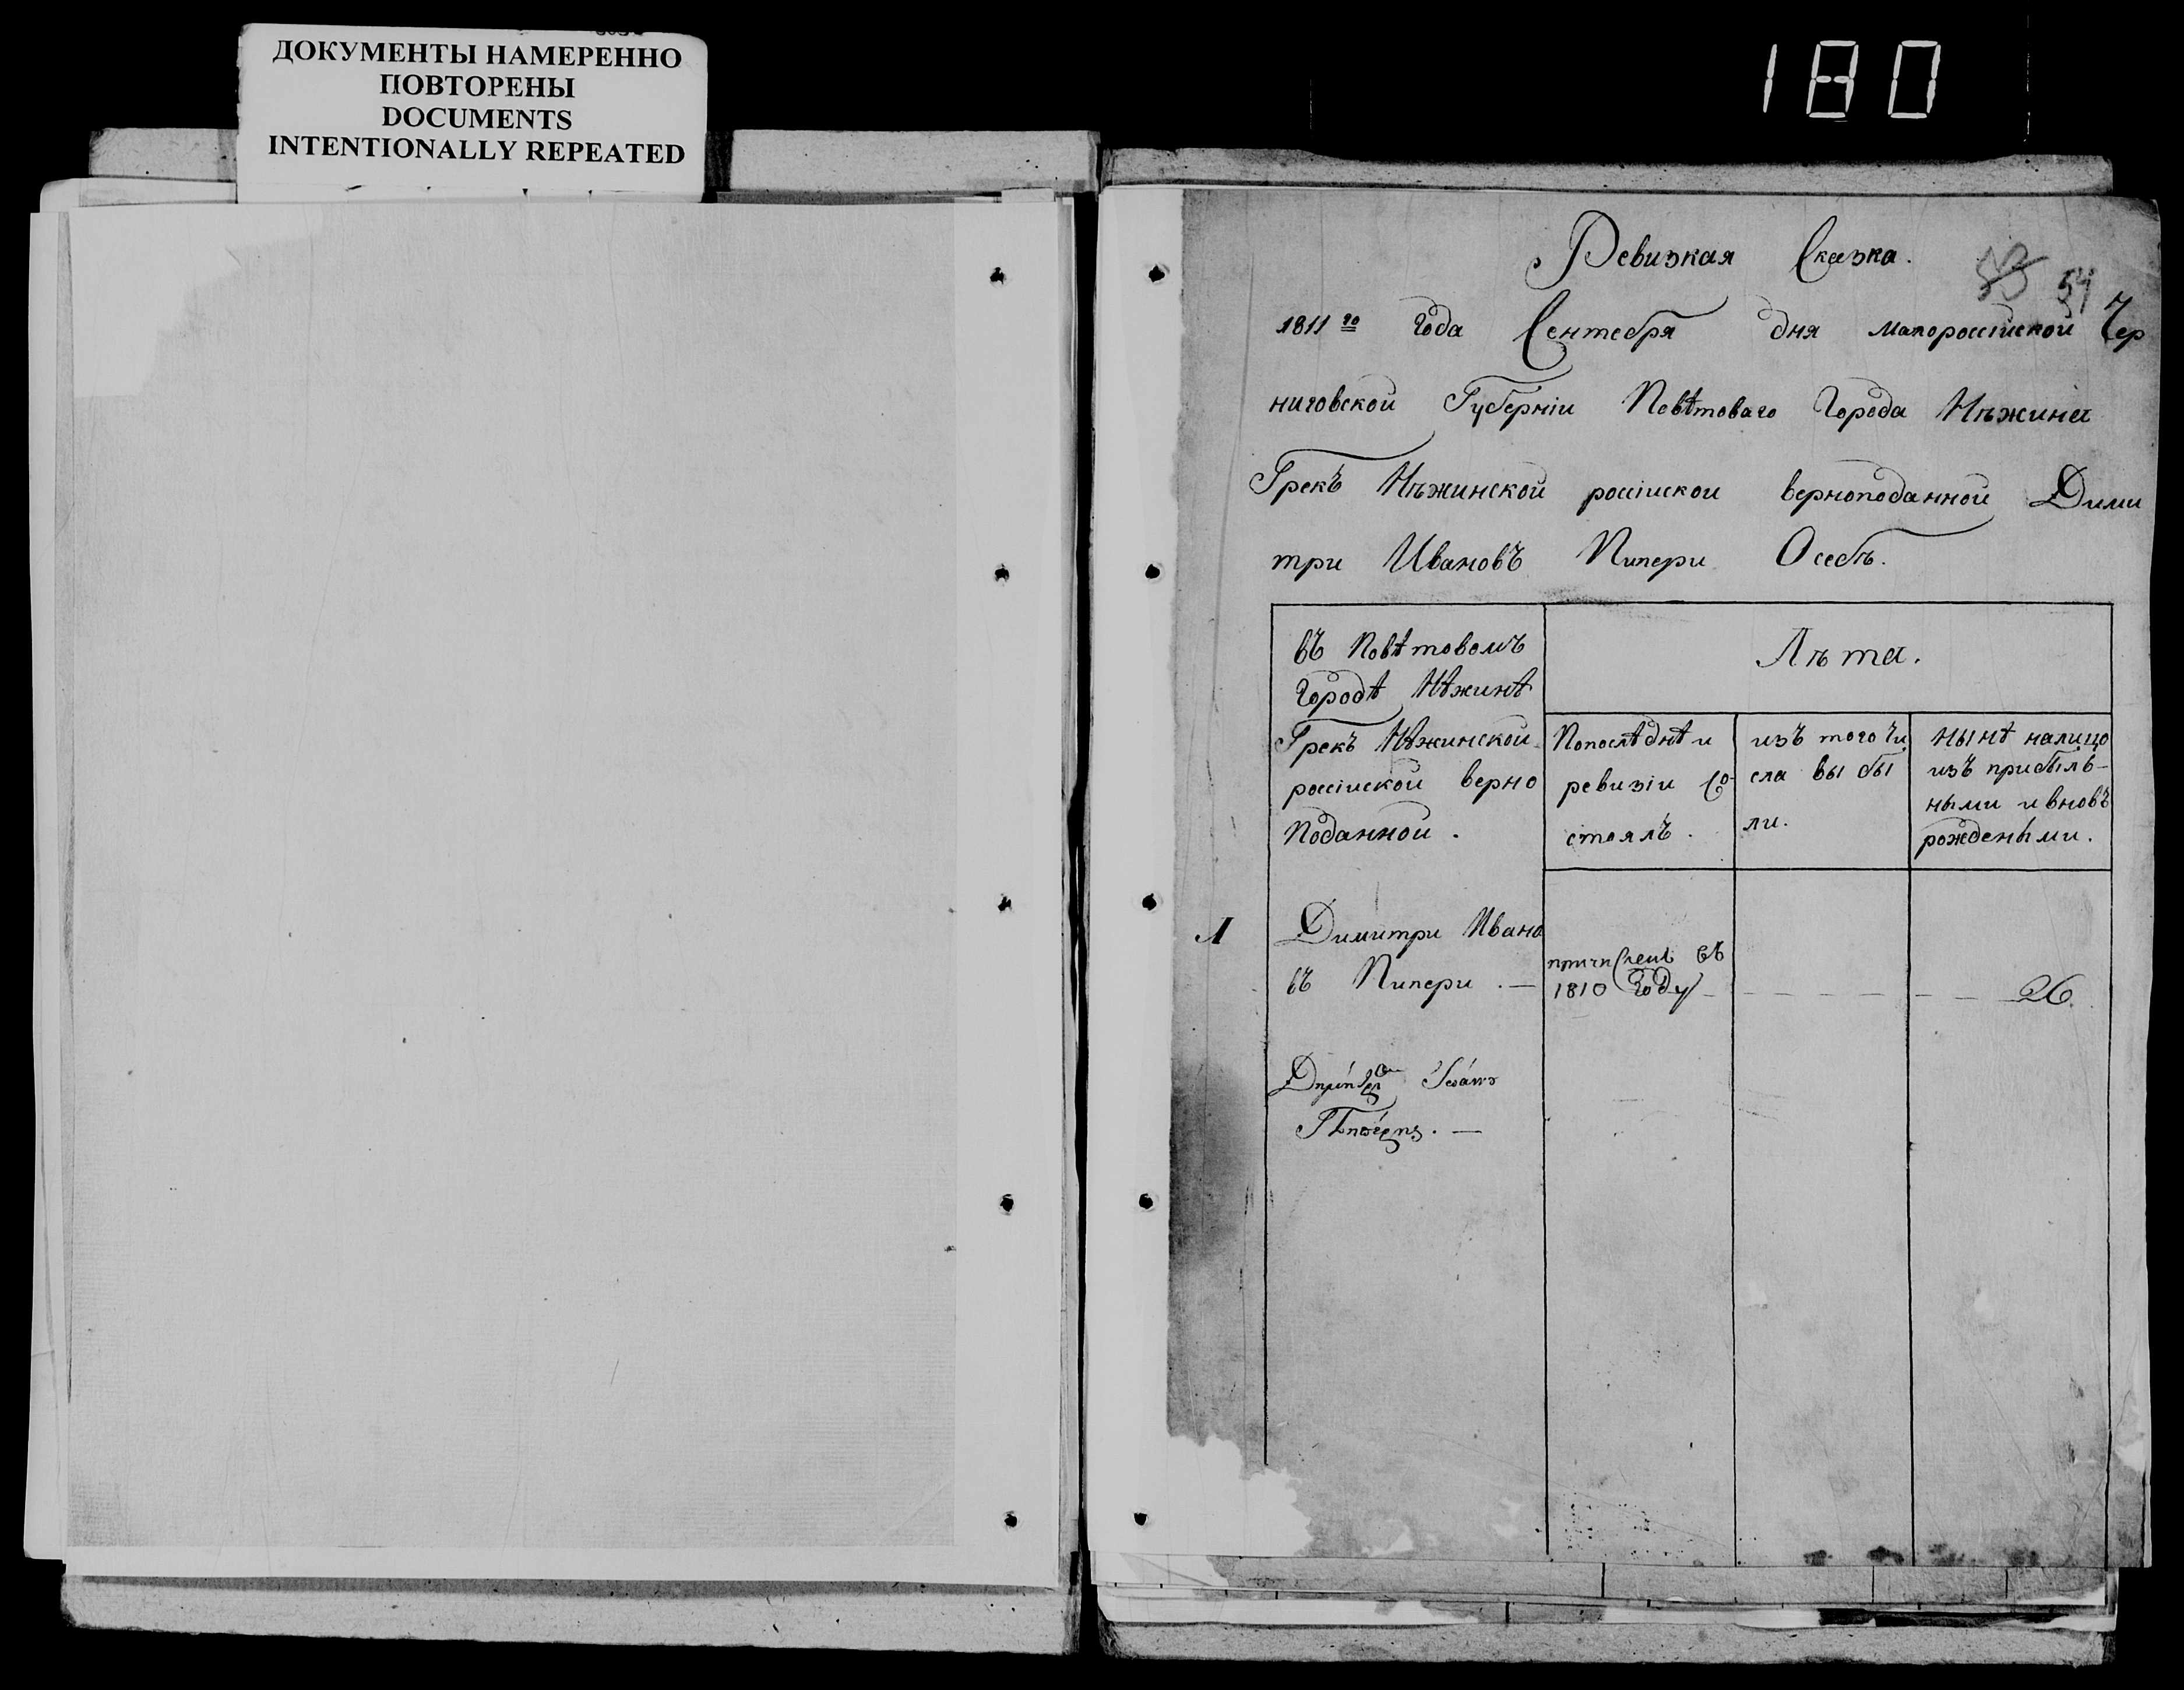 ДОКУМЕНТЫ НАМЕРЕННО
ПОВТОРЕНЫ
DOCUMENTS
INTENTIONALLY REPEATED
180
Ревизкая Сказка.
53 54
1811го Года Сентебря дня малоросыйской Чер
ниговской Губерніи Повѣтоваго Города Нѣжина
Грекъ Нѣжинской росіиской верноподанной Дими
три Ивановъ Пипери Осебѣ.
въ Повѣтовомъ
Городѣ Нѣжинѣ
Грекъ Нѣжинской
росіиской верно
Поданной.
Лѣта.
Попослѣднѣи
ревизіи Со
стоялъ.
изъ того Чи
сла вы бы
ли.
нынѣ налицо
изъ прибыль-
ными ивновъ
рождеными.
1
Димитри Ивано
въ Пипери. —
причисленъ въ
1810 Году
26.